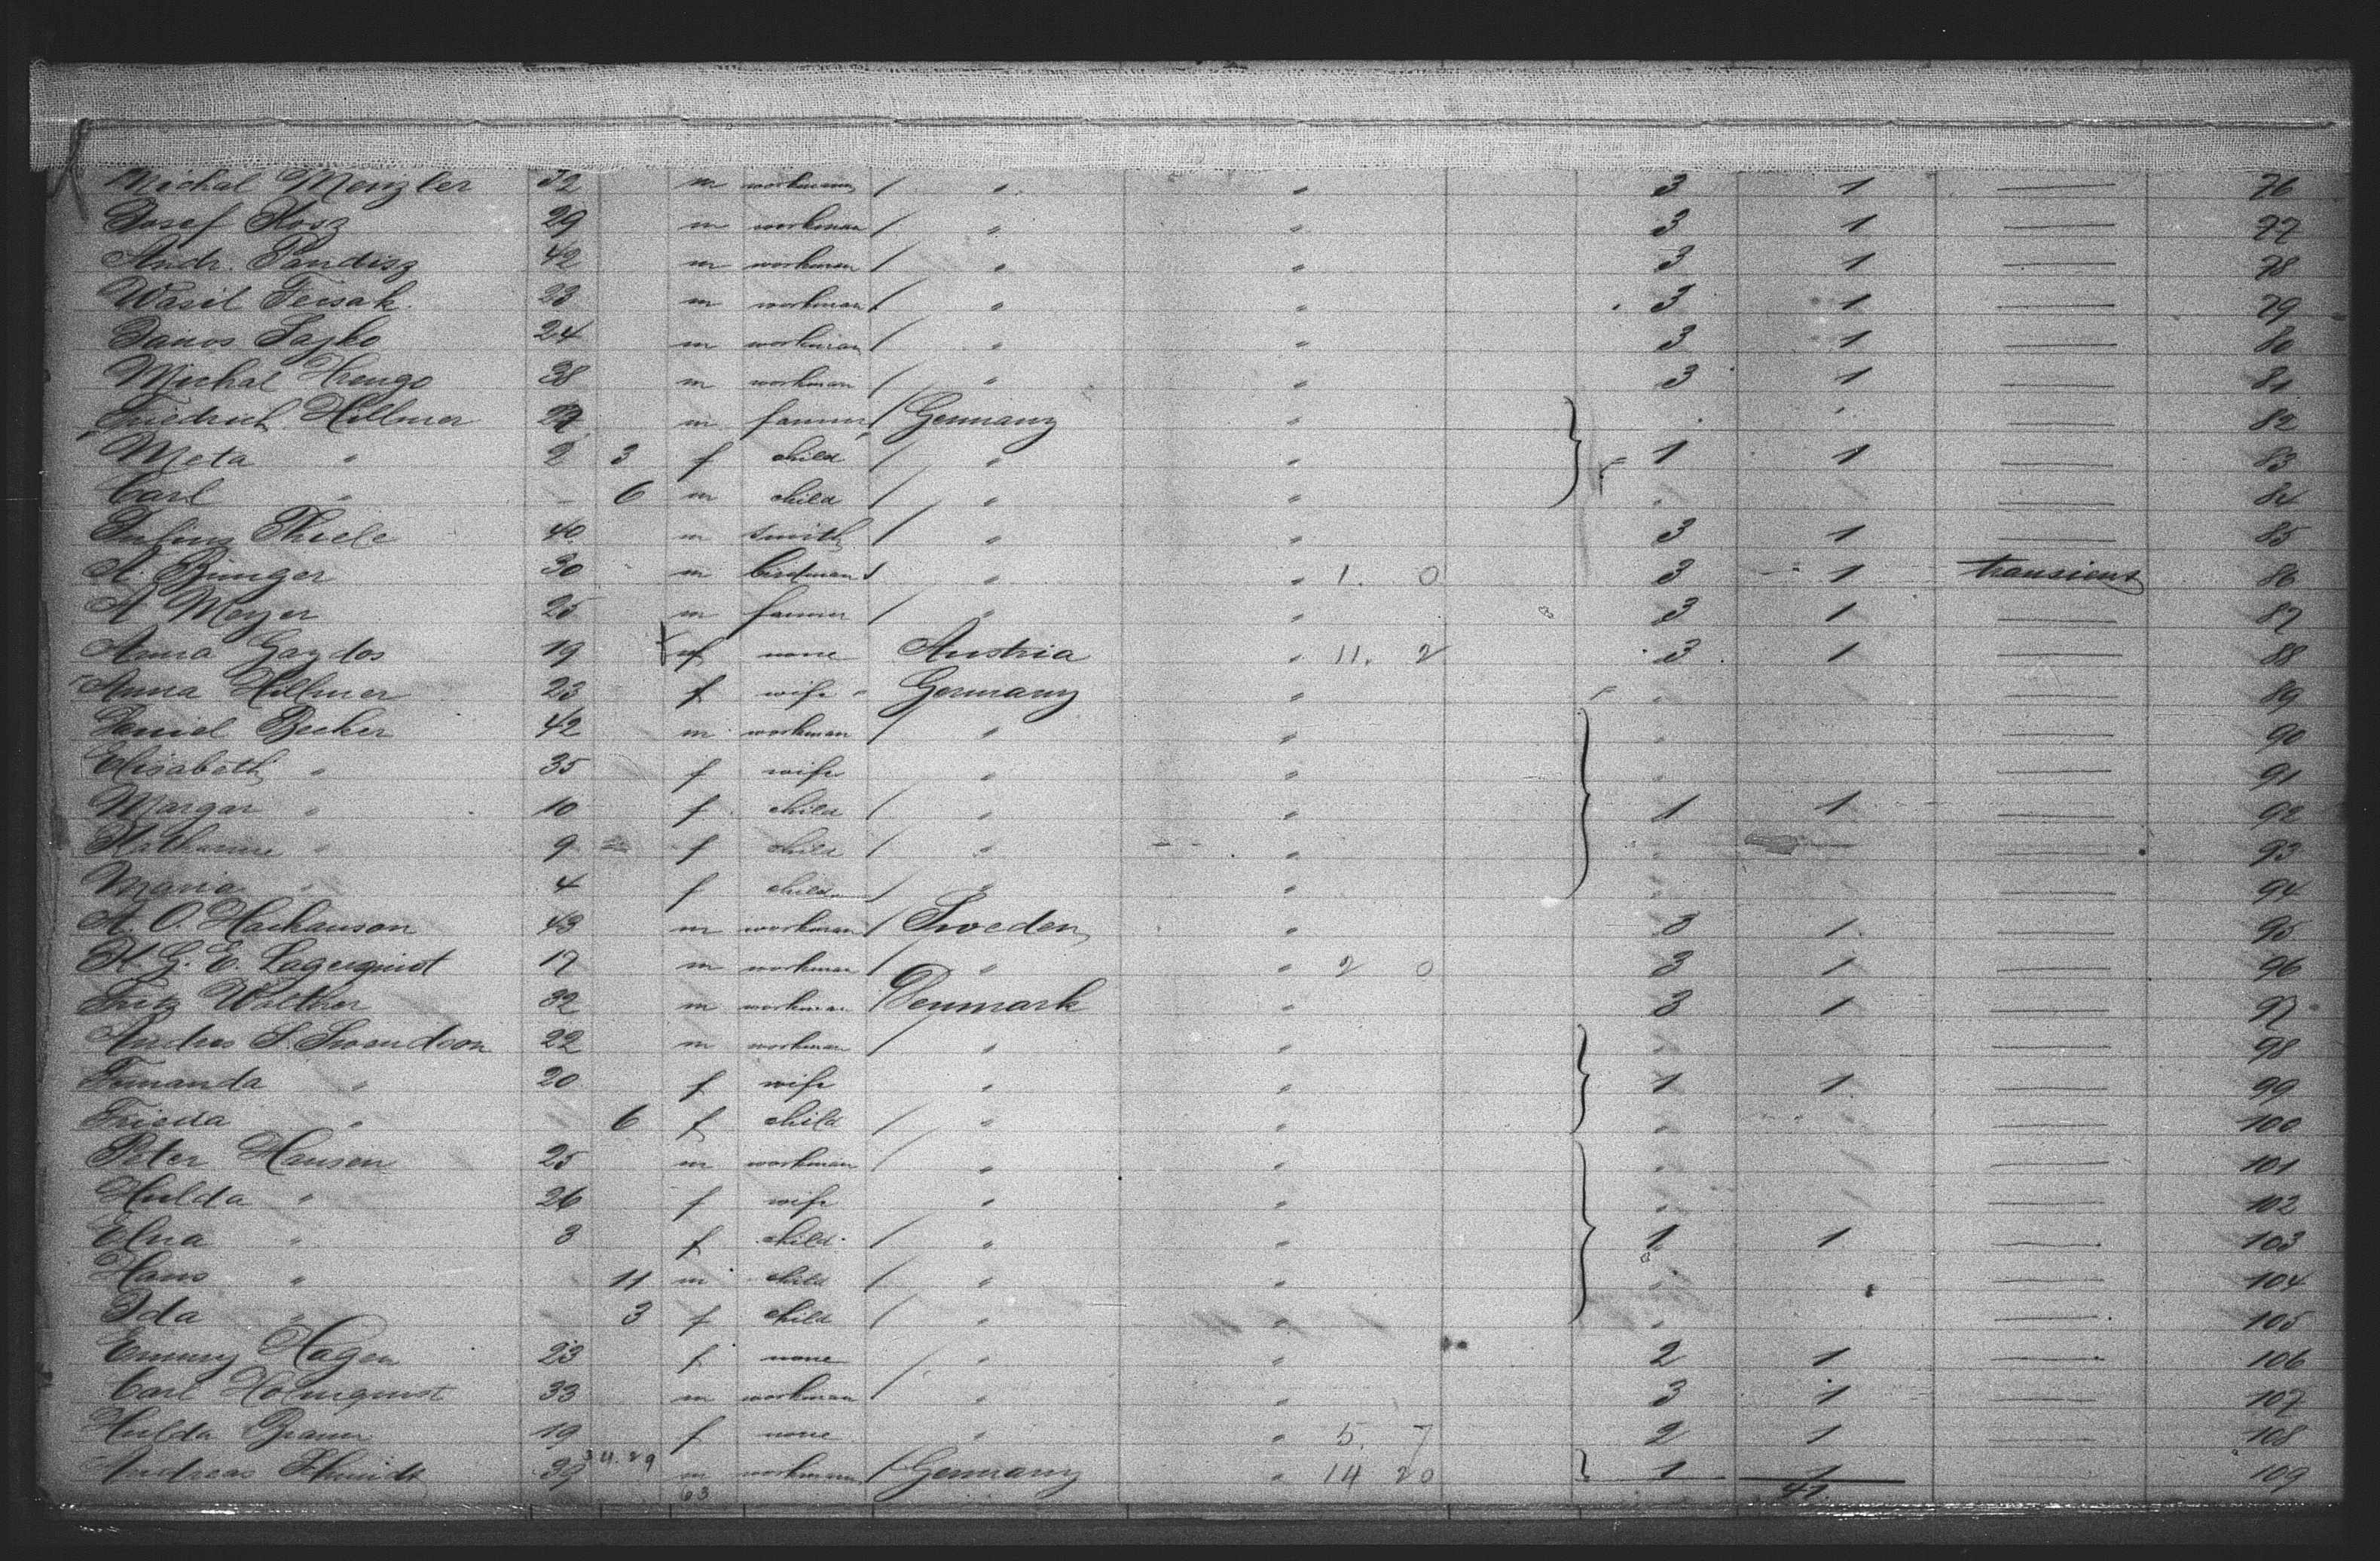 Michal Menzler 32 m workman / " " 3 1 — 76
Josef Kosz 29 m workman / " " 3 1 — 77
Andr. Pandisz 42 m workman / " " 3 1 — 78
Wasil Fersak 23 m workman / " " 3 1 — 79
Janos Sajko 24 m workman / " " 3 1 — 80
Michal Hrengo 38 m workman / " " 3 1 — 81
Friedrich Hillmer m farmer / Germany " — 82
Meta " 2 3 f child / " " 1 1 — 83
Carl " 6 m child / " " — 84
Julius Thiele 40 m smith / " " 3 1 — 85
A. Bünger 30 m birdman " " 1. 0 3 1 transient 86
A Meyer 25 m farmer / " " 3 1 — 87
Anna Gaydos 19 f none Austria " 11. 2 3 1 — 88
Anna Hillmer 23 f wife " Germany " — 89
Daniel Becker 42 m workman / " " — 90
Elisabeth " 35 f wife " " — 91
Margar " 10 f child / " " 1 1 — 92
Katharine " 9 f child / " " — 93
Maria " 4 f child / " " — 94
A. O. Hackanson 43 m workman / Sweden " 3 1 — 95
K. G. E. Lagerquist 17 m workman / " " 2 0 3 1 — 96
Fritz Walther 32 m workman Denmark " 3 1 — 97
Andres S. Swendson 22 m workman / " " — 98
Fernanda " 20 f wife " " 1 1 — 99
Frieda " 6 f child / " " — 100
Peter Hansen 25 m workman / " " — 101
Hulda " 26 f wife " " — 102
Elna " 3 f child / " " 1 1 — 103
Hans " 11 m child / " " — 104
Ida " 3 f child / " " — 105
Emmy Hagen 23 f none / " " 2 1 — 106
Carl Holmquist 33 m workman / " " 3 1 — 107
Hulda 19 f none " " 5. 7 2 1 — 108
Andreas Schmidt 39 m workman / Germany " 14 20 1 1 — 109
63